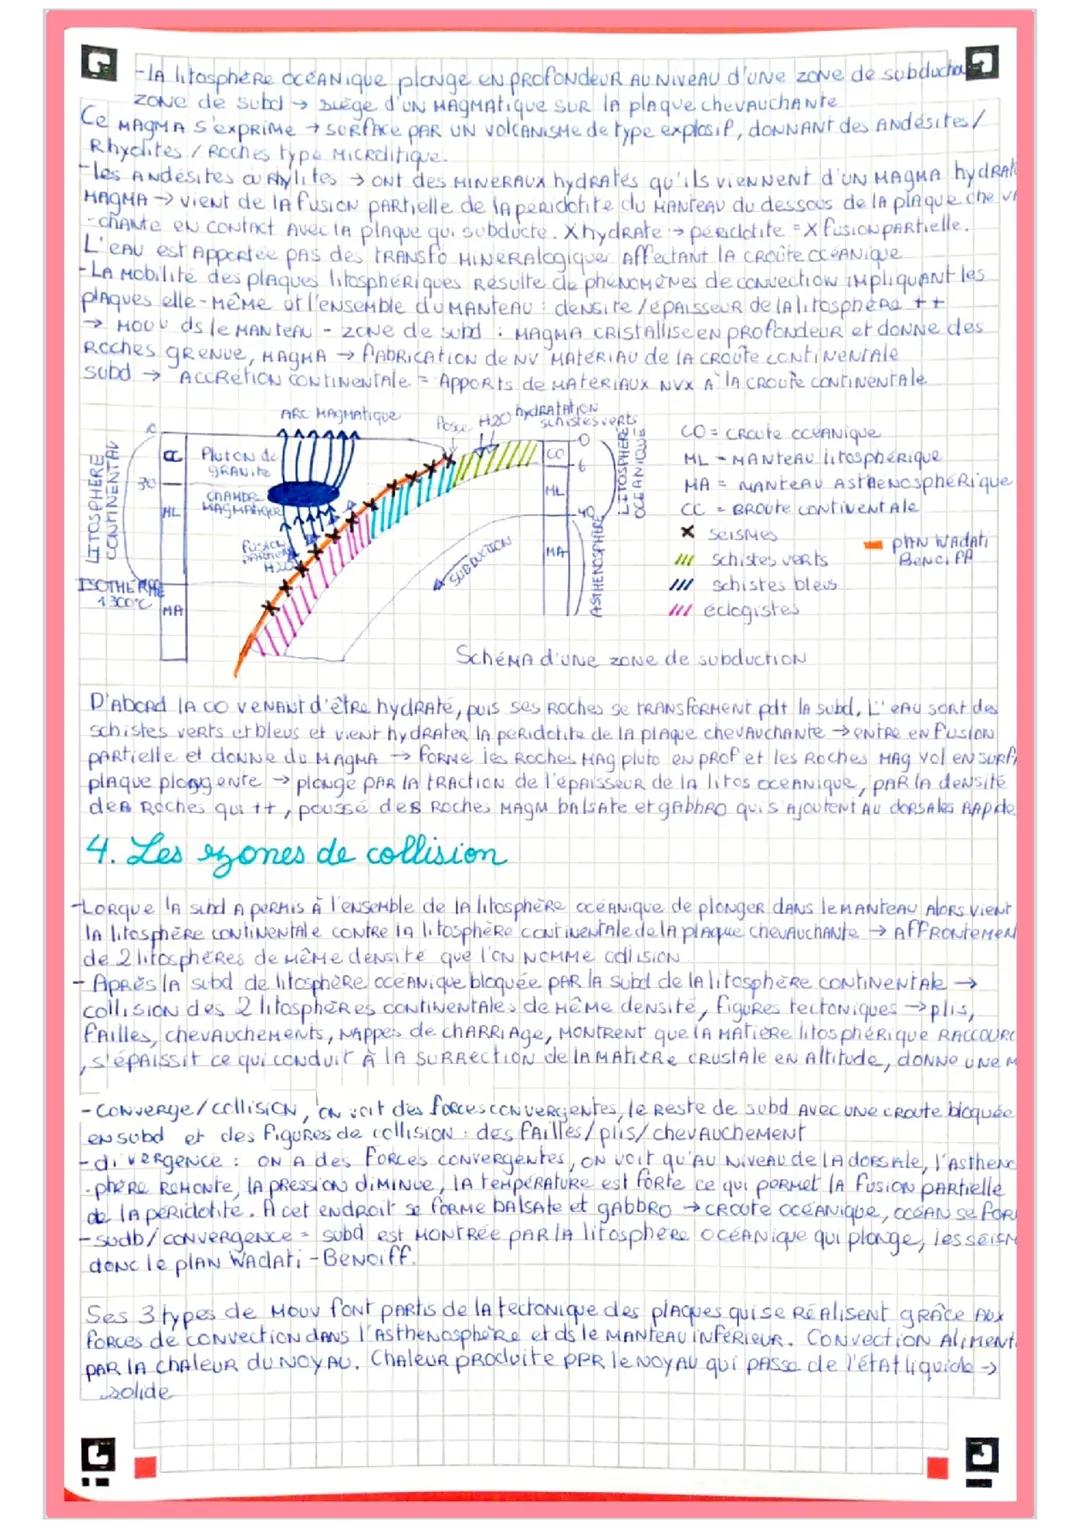 -la litosphère océanique plonge en profondeur au niveau d'une zone de
zone de subd → siège d'un magmatique sur la plaque chevauchante
Ce magma s'exprime → surface par un volcanisme de type explosif, donnant des andésites/
Rhyolites / Roches type microlitique.
-les andésites ou → ont des minéraux hydratés qu'ils viennent d'un magma
magma → vient de la fusion partielle de la peridotite du manteau du dessous de la plaque che
-chante en contact avec la plaque qui subducte. X hydrate → péridotite = X fusion partielle.
L'eau est apportée pas des transfo minéralogique affectant la croûte océanique
-La mobilité des plaques litosphériques résulte de phénomènes de convection impliquant les
plaques elle-même et l'ensemble du manteau : densite / épaisseur de la litosphère ++
→ mouv ds le manteau - zone de subd : magma cristallise en profondeur et donne des
Roches grenue, magma → fabrication de nv matériau de la croûte continentale
subd → accrétion continentale = apports de matériaux nvx à la croûte continentale
ARC MAGMATIQUE
Fosse H2O hydratation
schistes verts
0
CC
Pluton de
granite
30
ML
CHAMBRE
MAGMATIQUE
fusion
partielle
H2O
LITOSPHÈRE
CONTINENTAL
ISOTHERME
1300°C
MA
SUBDUCTION
CO
0
6
ML
40
MA
LITOSPHÈRE
OCÉANIQUE
ASTHENOSPHÈRE
CO = croute océanique
ML - manteau litosphérique
MA = manteau asthénosphérique
CC = broute continentale
X séismes
/// schistes verts
/// schistes bleus
/// éclogistes
plan Wadati
Schéma d'une zone de subduction
D'abord la CO venant d'être hydraté, puis ses roches se transforment pdt la subd, L'eau sort des
schistes verts et bleus et vient hydrater la péridotite de la plaque chevauchante → entre en fusion
partielle et donne du magma → forme les roches mag pluto en prof et les roches mag vol en
plaque plongente → plonge par la traction de l'épaisseur de la litos océanique, par la densité
des roches qui ++, poussé des roches magm balsate et gabbro qui s'ajoutent au dorsales
4. Les zones de collision
-Lorque la subd a permis à l'ensemble de la litosphère océanique de plonger dans le manteau alors vient
la litosphère continentale contre la litosphère continentale de la plaque chevauchante →
de 2 litosphères de même densité que l'on nomme collision
- Après la subd de litosphère océanique bloquée par la subd de la litosphère continentale →
collision des 2 litosphères continentales de même densité, figures tectoniques → plis,
failles, chevauchements, nappes de charriage, montrent que la matière litosphérique
, s'épaissit ce qui conduit à la surrection de la matière crustale en altitude, donne une
- Converge/collision, on voit des forces convergentes, le reste de subd avec une croute bloquée
en subd et des figures de collision : des failles/plis/chevauchement
- divergence : on a des forces convergentes, on voit qu'au niveau de la dorsale,
-phère remonte, la pression diminue, la température est forte ce qui permet la fusion partielle
de la péridotite. A cet endroit se forme balsate et gabbro → croute océanique, océan se
- sudb/convergence = subd est montrée par la litosphère océanique qui plonge, les
donc le plan Wadati-Benoiff.
Ses 3 types de mouv font partis de la tectonique des plaques qui se réalisent grâce aux
forces de convection dans l'asthénosphère et ds le manteau inférieur. Convection
par la chaleur du noyau. Chaleur produite ppr le noyau qui passe de l'état liquide →
solide